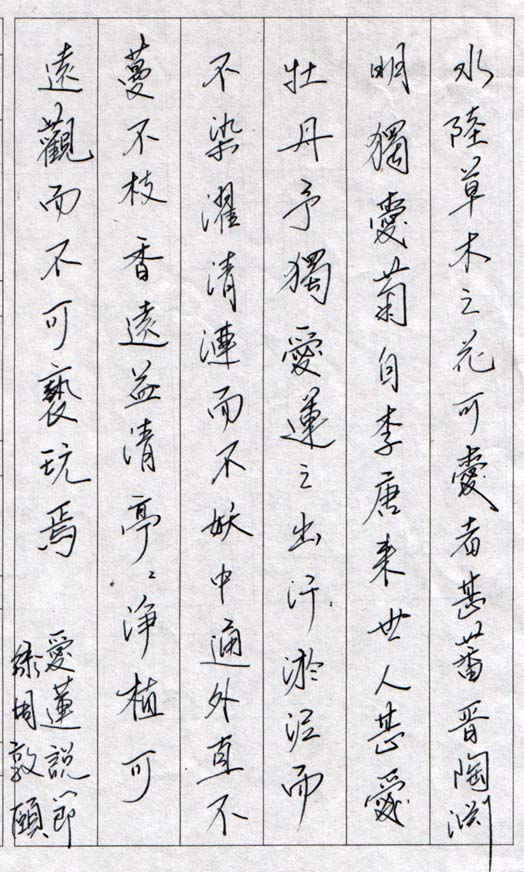 水陸草木之花可愛者甚蕃晋陶淵
明獨愛菊自李唐来世人甚愛
牡丹予獨愛蓮之出汙淤泥而
不染濯清漣而不妖中通外直不
蔓不枝香遠益清亭〻净植可
遠觀而不可褻玩焉
愛蓮說節
錄周敦頤